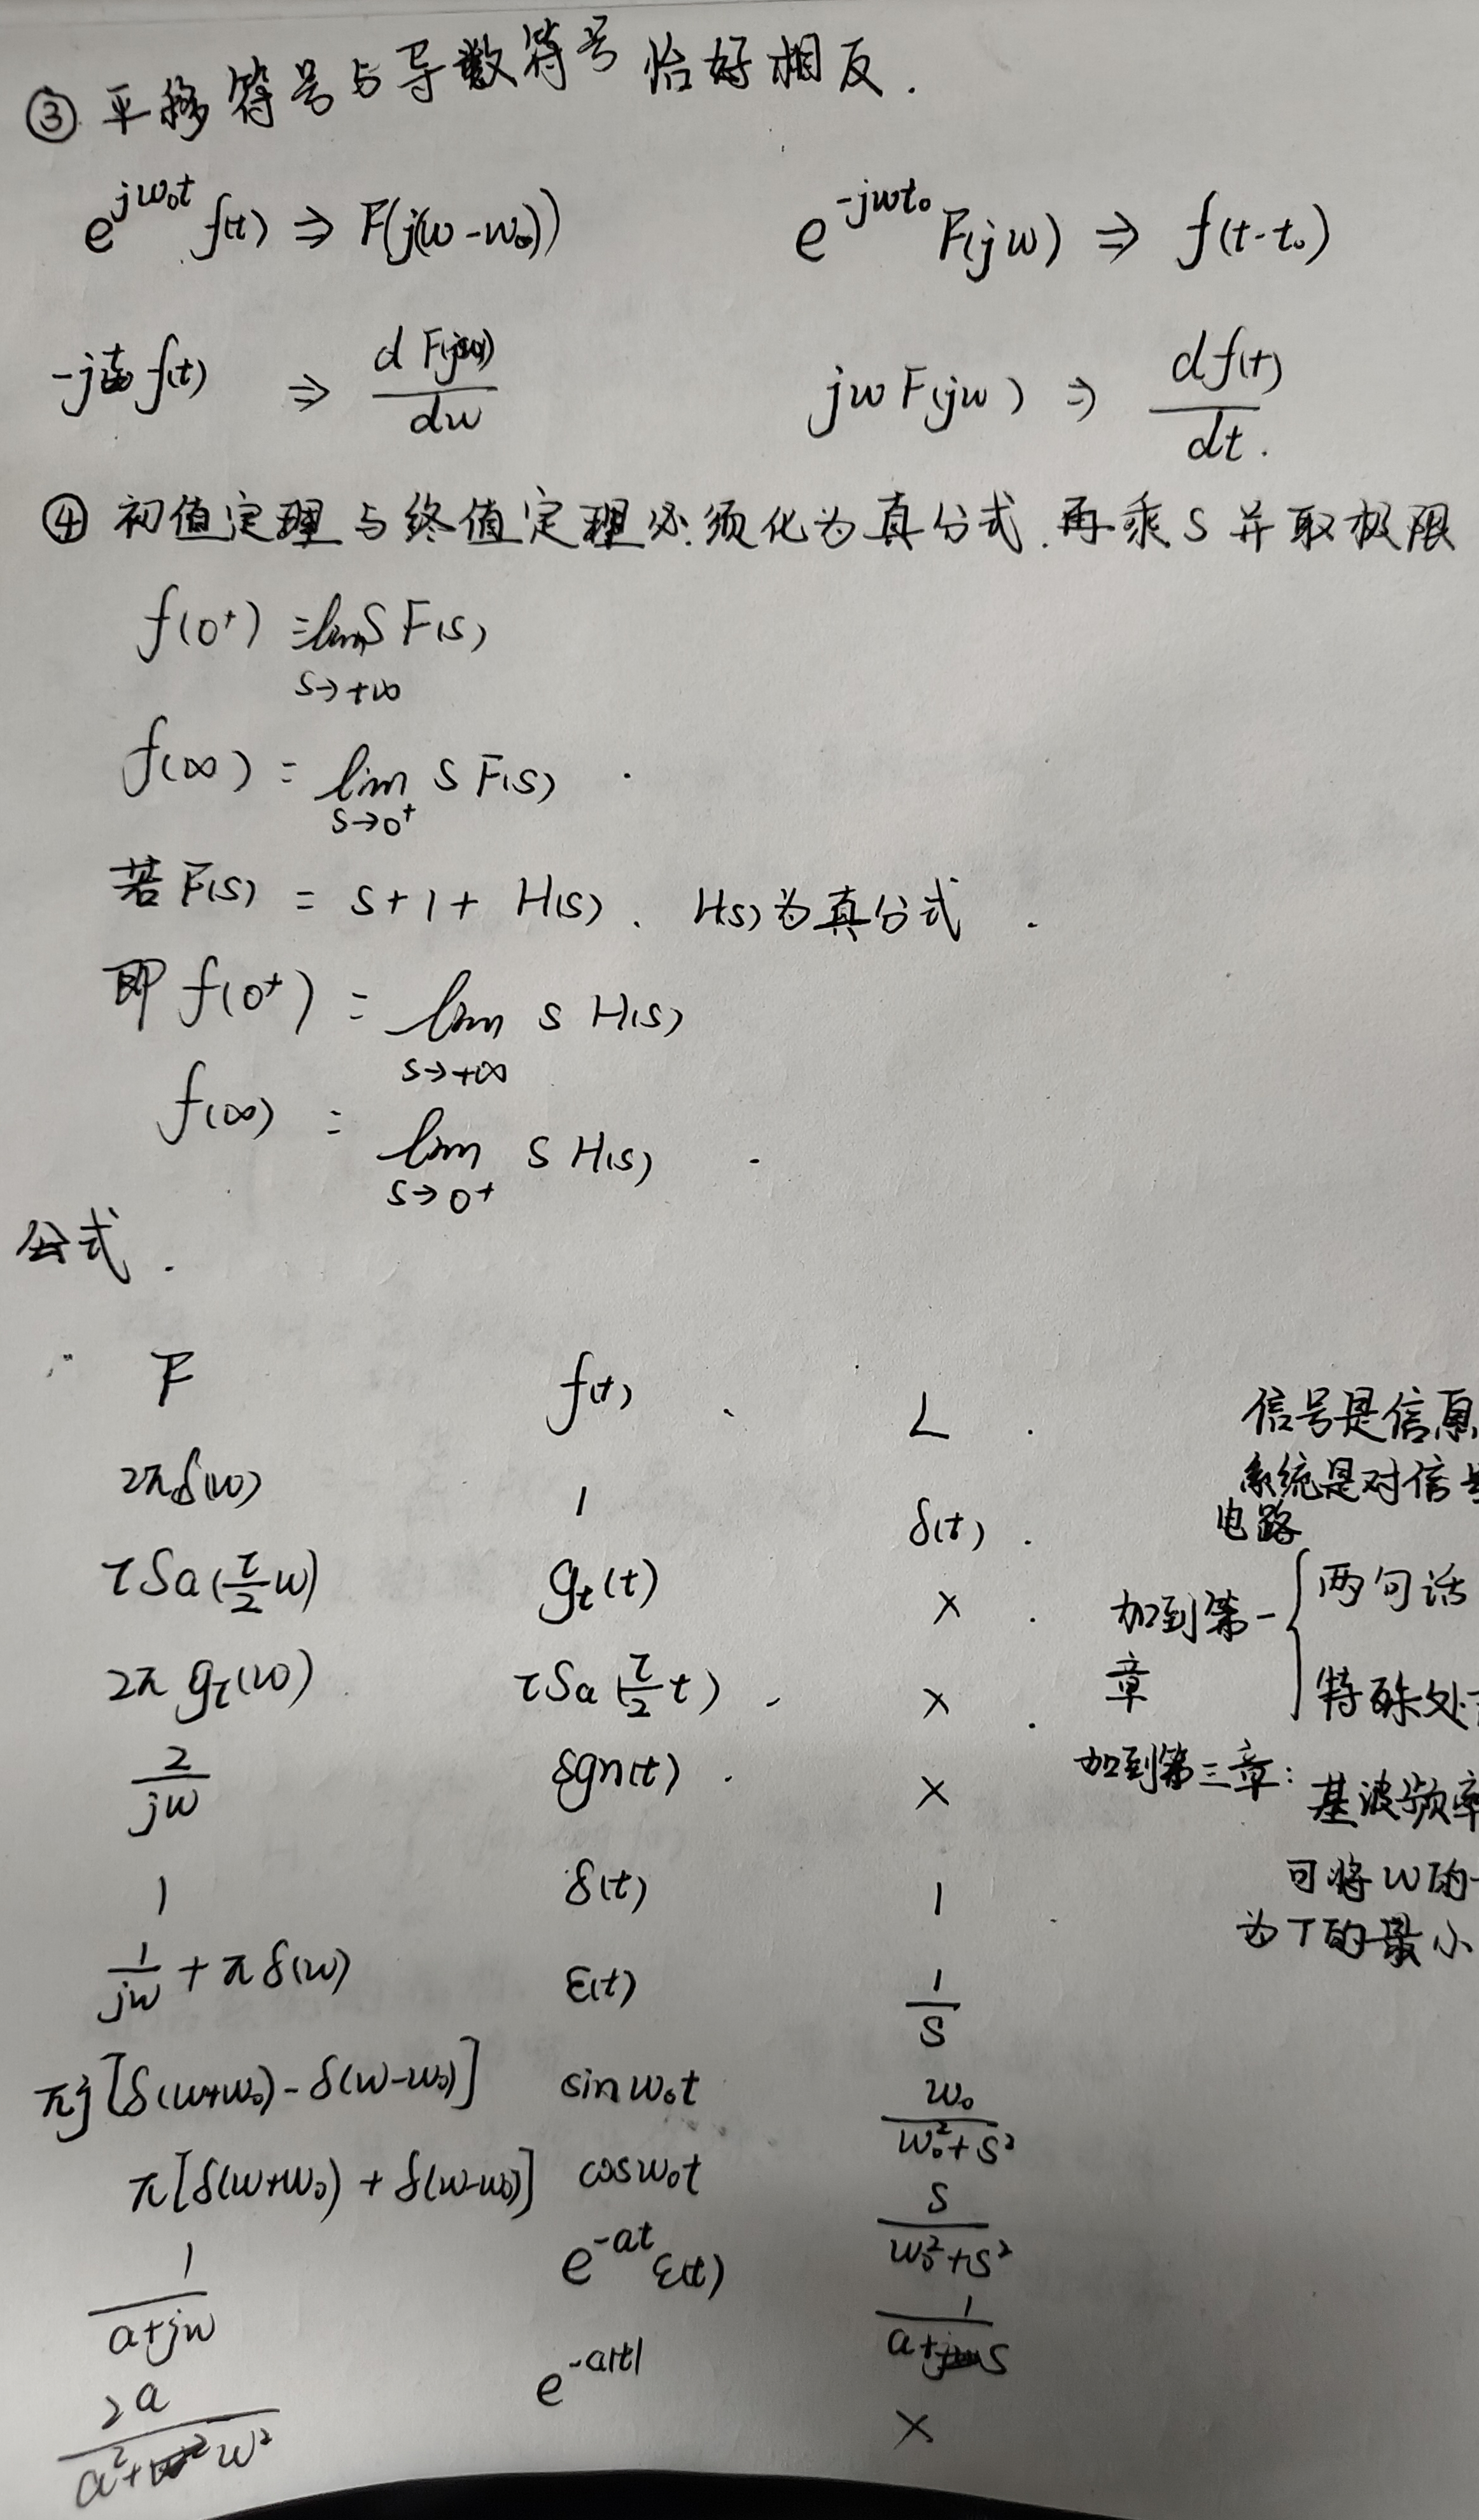 ③ 平移符号与导数符号恰好相反.
e^{jw₀t} f(t) ⇒ F(j(w-w₀))    e^{-jwt₀} F(jw) ⇒ f(t-t₀)
-jt f(t) ⇒ dF(jw)/dw    jwF(jw) ⇒ df(t)/dt.
④ 初值定理与终值定理必须化为真分式.再乘S并取极限
f(0⁺) = lim_{S→+∞} S F(S)
f(∞) = lim_{S→0⁺} S F(S).
若F(S) = S+1+H(S). H(S)为真分式.
即 f(0⁺) = lim_{S→+∞} S H(S)
f(∞) = lim_{S→0⁺} S H(S).
公式.
F    f(t).    L.
2πδ(w)    1    δ(t).
τSa(τ/2 w)    g_τ(t)    ×.
2πg_τ(w)    τSa(τ/2 t).    ×.
2/jw    sgn(t).    ×
1    δ(t)    1
1/jw + πδ(w)    ε(t)    1/S
πj[δ(w+w₀)-δ(w-w₀)]    sinw₀t    w₀/(w₀²+S²)
π[δ(w+w₀)+δ(w-w₀)]    cosw₀t    S/(w₀²+S²)
1/(a+jw)    e^{-at}ε(t)    1/(a+S)
2a/(a²+w²)    e^{-a|t|}    ×
信号是信息
系统是对信号
电路
加到第一章 { 两句话
特殊处
加到第三章: 基波频率
可将w的
为T的最小